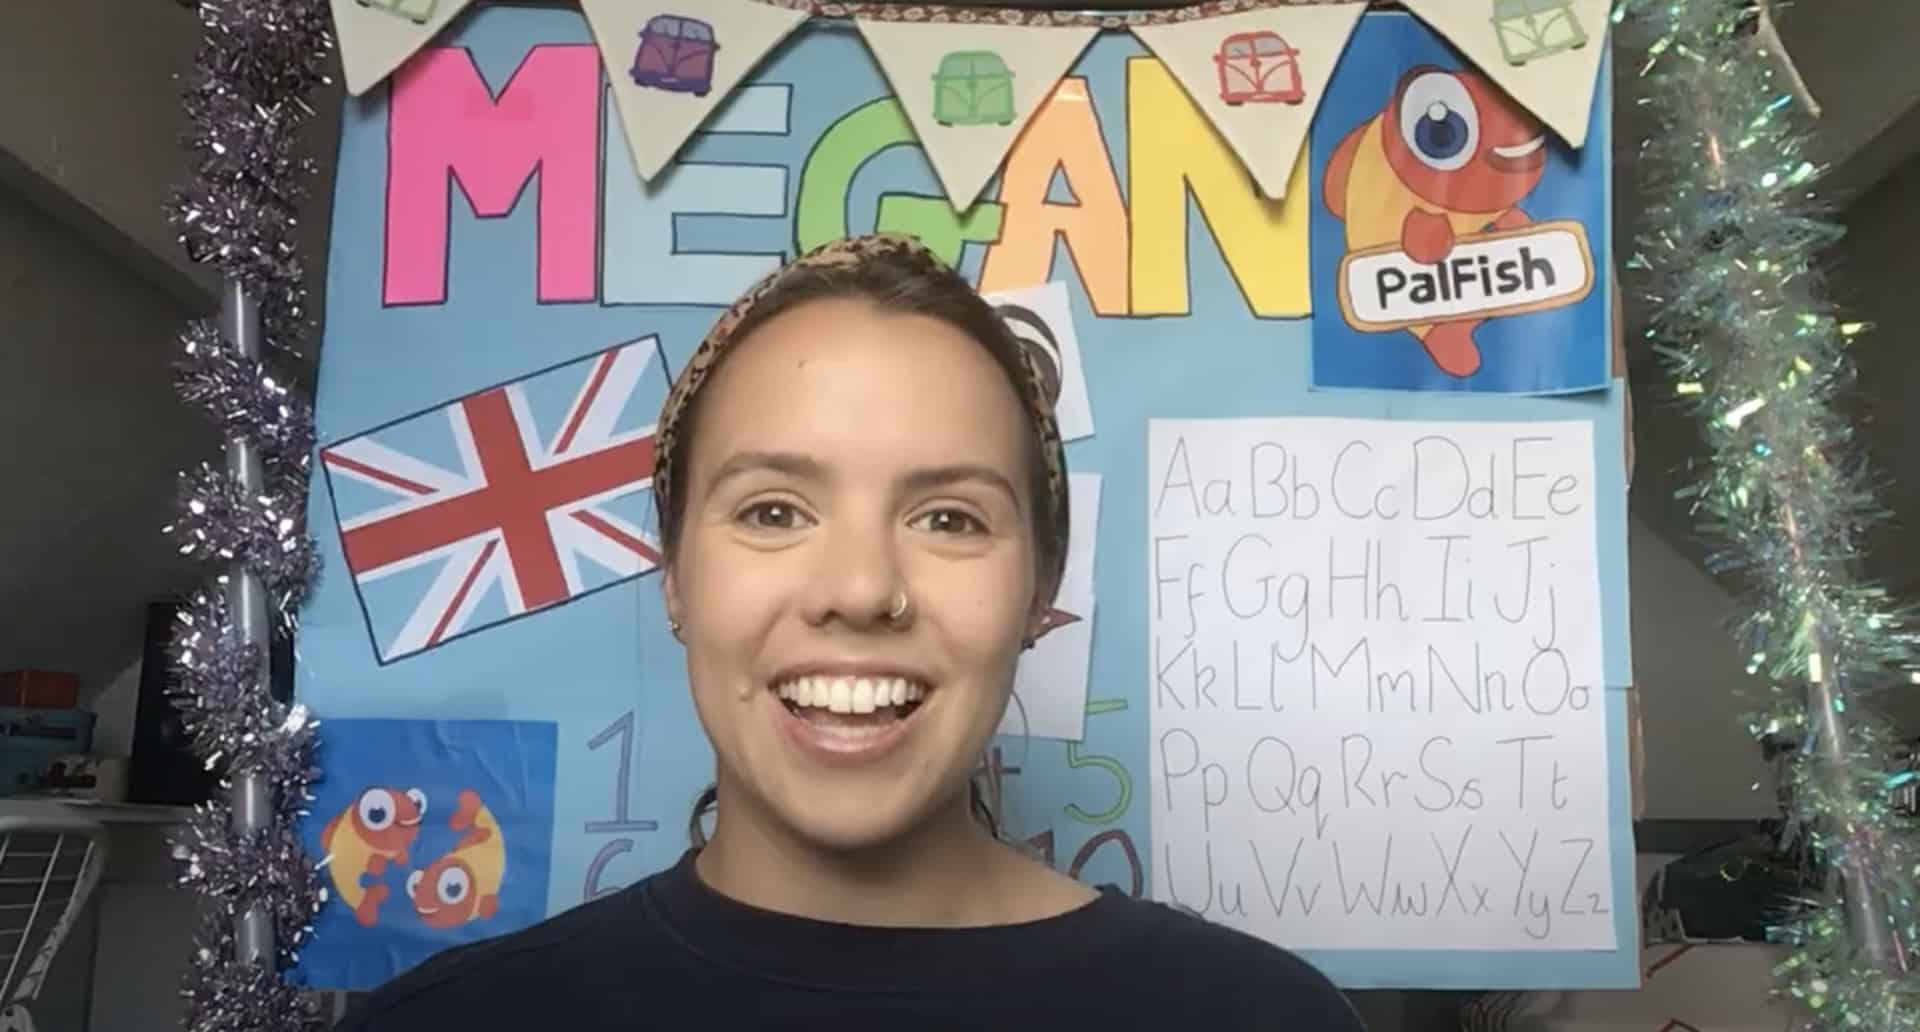 MEGAN
PalFish
Aa Bb Cc Dd Ee
Ff Gg Hh Ii Jj
Kk Ll Mm Nn Oo
Pp Qq Rr Ss Tt
Uu Vv Ww Xx Yy Zz
1 5
6 10